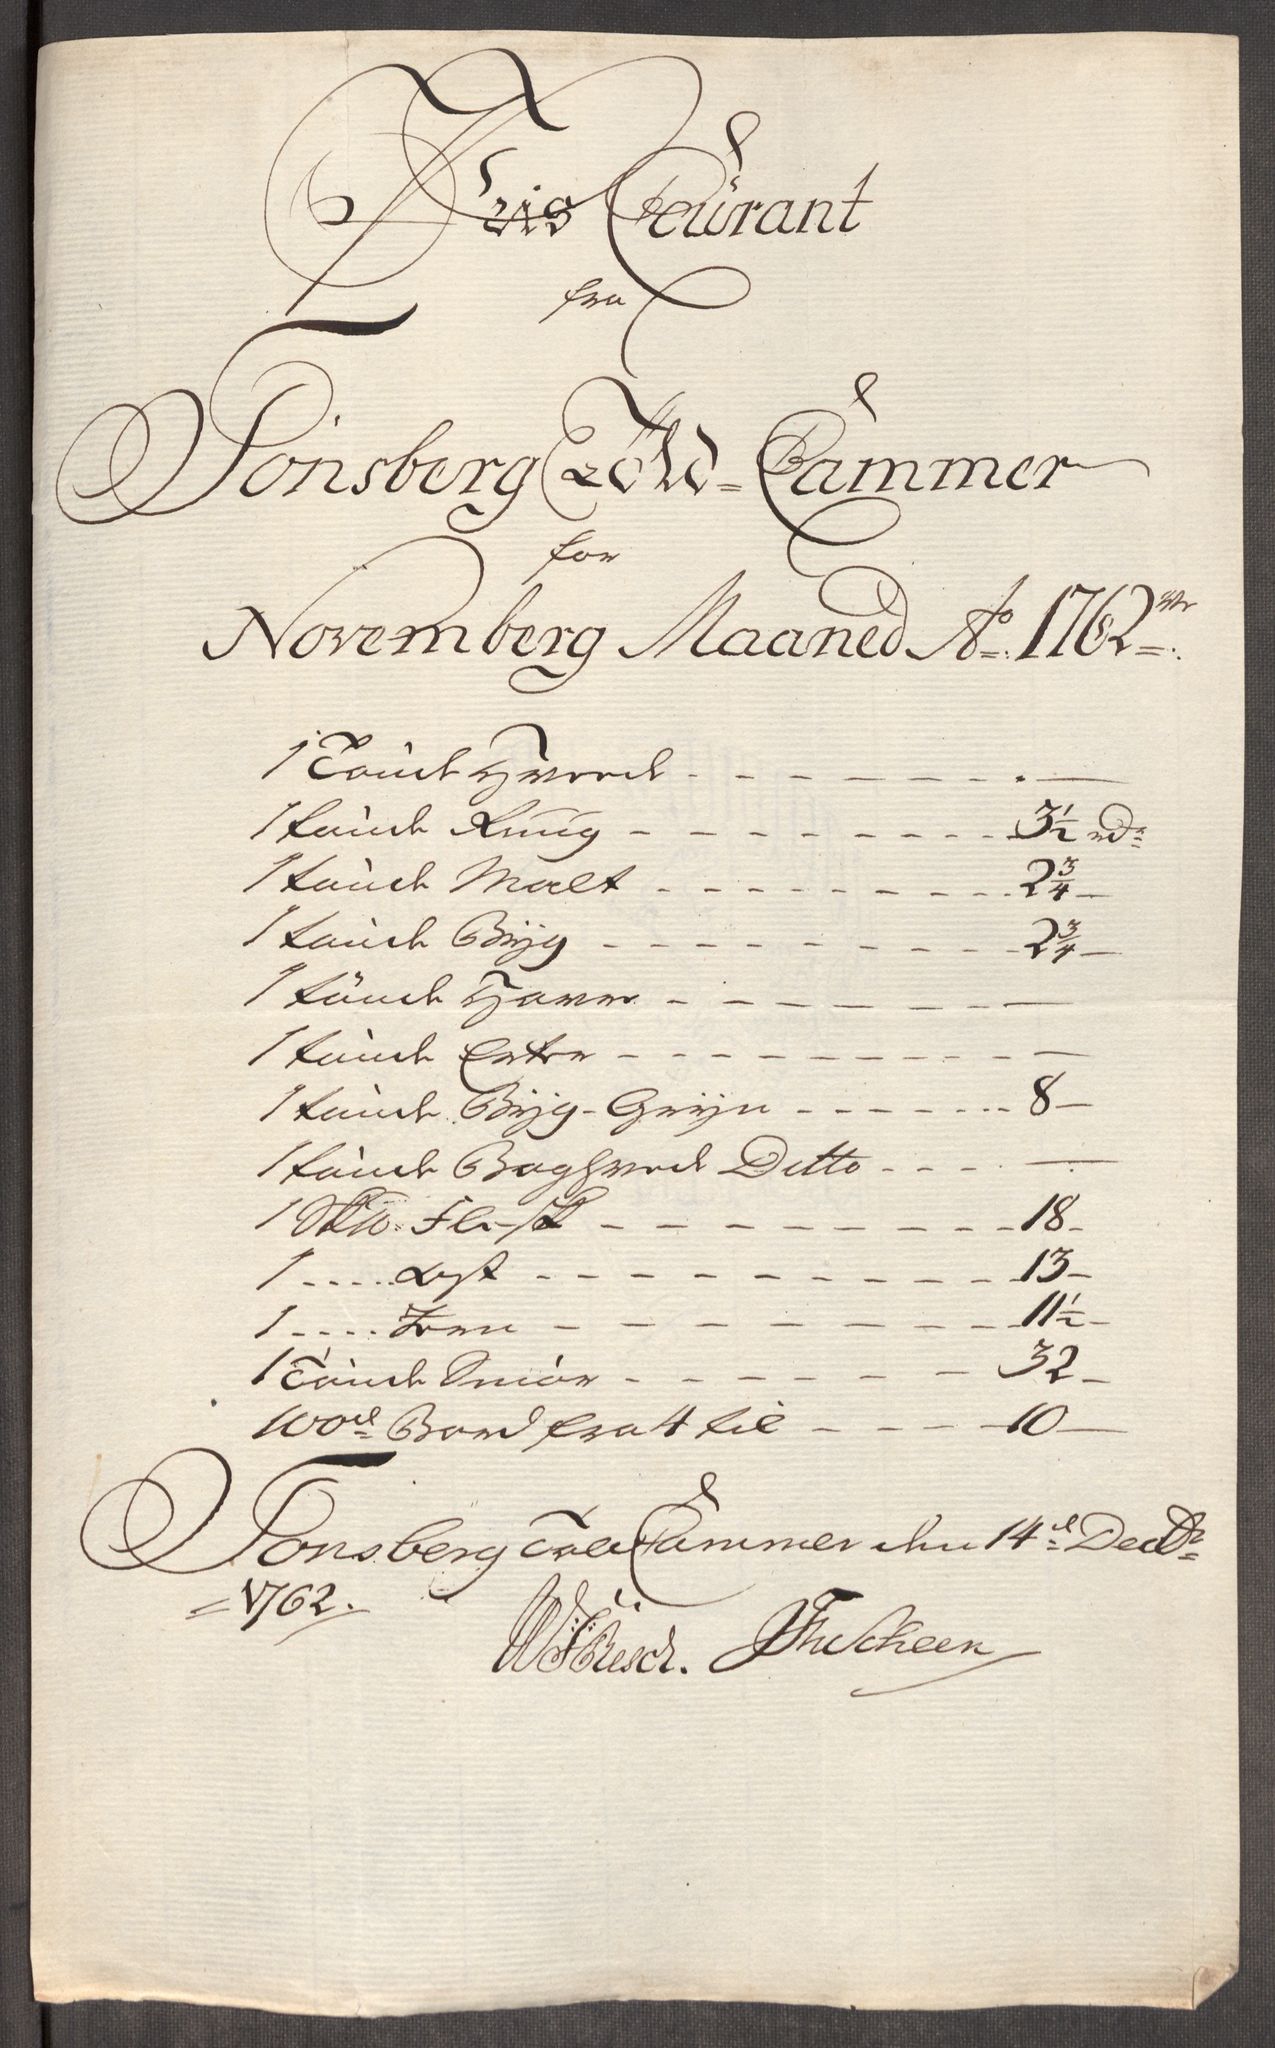 Pris Courant
fra
Tönsberg Told-Cammer
for
Novemberg Maaned Ao. 1762
1 Tönde Hvede - - - - - - - . —
1 tönde Rüüg - - - - - - - - 3½ rd=
1 tönde Malt - - - - - - - - 2¾ —
1 tönde Bÿg - - - - - - - - 2¾ —
1 tönde Haver - - - - - - - —
1 tönde Erter - - - - - - - - —
1 tönde Bÿg-Grÿn - - - - - - - 8 —
1 tönde Boghvede Ditto - - - - —
1 Sk℔. Flesk - - - - - - - - 18 -
1 ..... Lyst - - - - - - - - - - 13 -
1 ..... Tran - - - - - - - - - 11½ -
1 Tönde Smör - - - - - - - 32 -
100de Bord fra 4 til - - - - - 10 —
Tönsberg Told Cammer den 14de Decbr
= 1762.